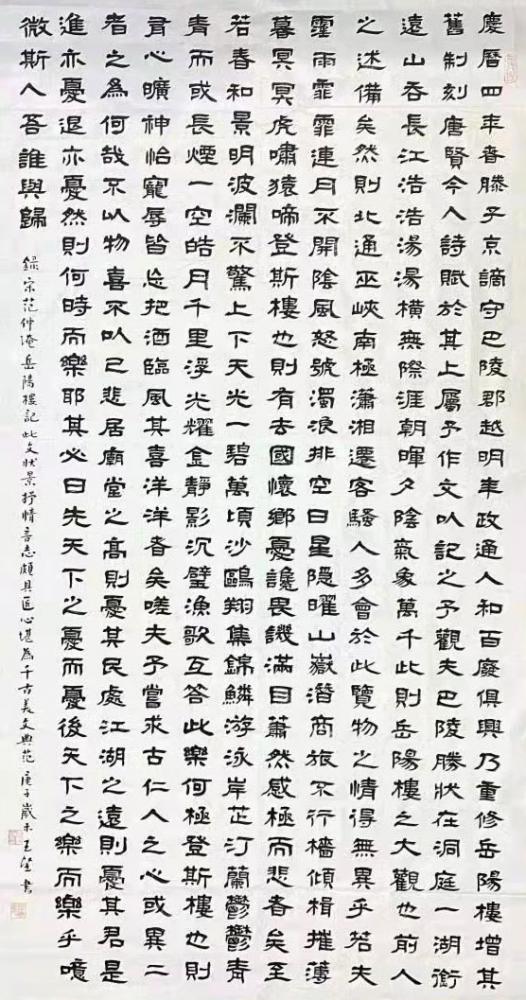 慶曆四年春滕子京謫守巴陵郡越明年政通人和百廢俱興乃重修岳陽樓增其
舊制刻唐賢今人詩賦於其上屬予作文以記之予觀夫巴陵勝狀在洞庭一湖銜
遠山吞長江浩浩湯湯橫無際涯朝暉夕陰氣象萬千此則岳陽樓之大觀也前人
之述備矣然則北通巫峽南極瀟湘遷客騷人多會於此覽物之情得無異乎若夫
霪雨霏霏連月不開陰風怒號濁浪排空日星隱曜山嶽潛商旅不行檣傾楫摧薄
暮冥冥虎嘯猿啼登斯樓也則有去國懷鄉憂讒畏譏滿目蕭然感極而悲者矣至
若春和景明波瀾不驚上下天光一碧萬頃沙鷗翔集錦鱗游泳岸芷汀蘭鬱鬱青
青而或長煙一空皓月千里浮光耀金靜影沉璧漁歌互答此樂何極登斯樓也則
有心曠神怡寵辱皆忘把酒臨風其喜洋洋者矣嗟夫予嘗求古仁人之心或異二
者之為何哉不以物喜不以己悲居廟堂之高則憂其民處江湖之遠則憂其君是
進亦憂退亦憂然則何時而樂耶其必曰先天下之憂而憂後天下之樂而樂乎噫
微斯人吾誰與歸
錄宗范仲淹岳陽樓記此文狀景抒情言志頗具匠心堪為千古美文典范庚子歲末王書